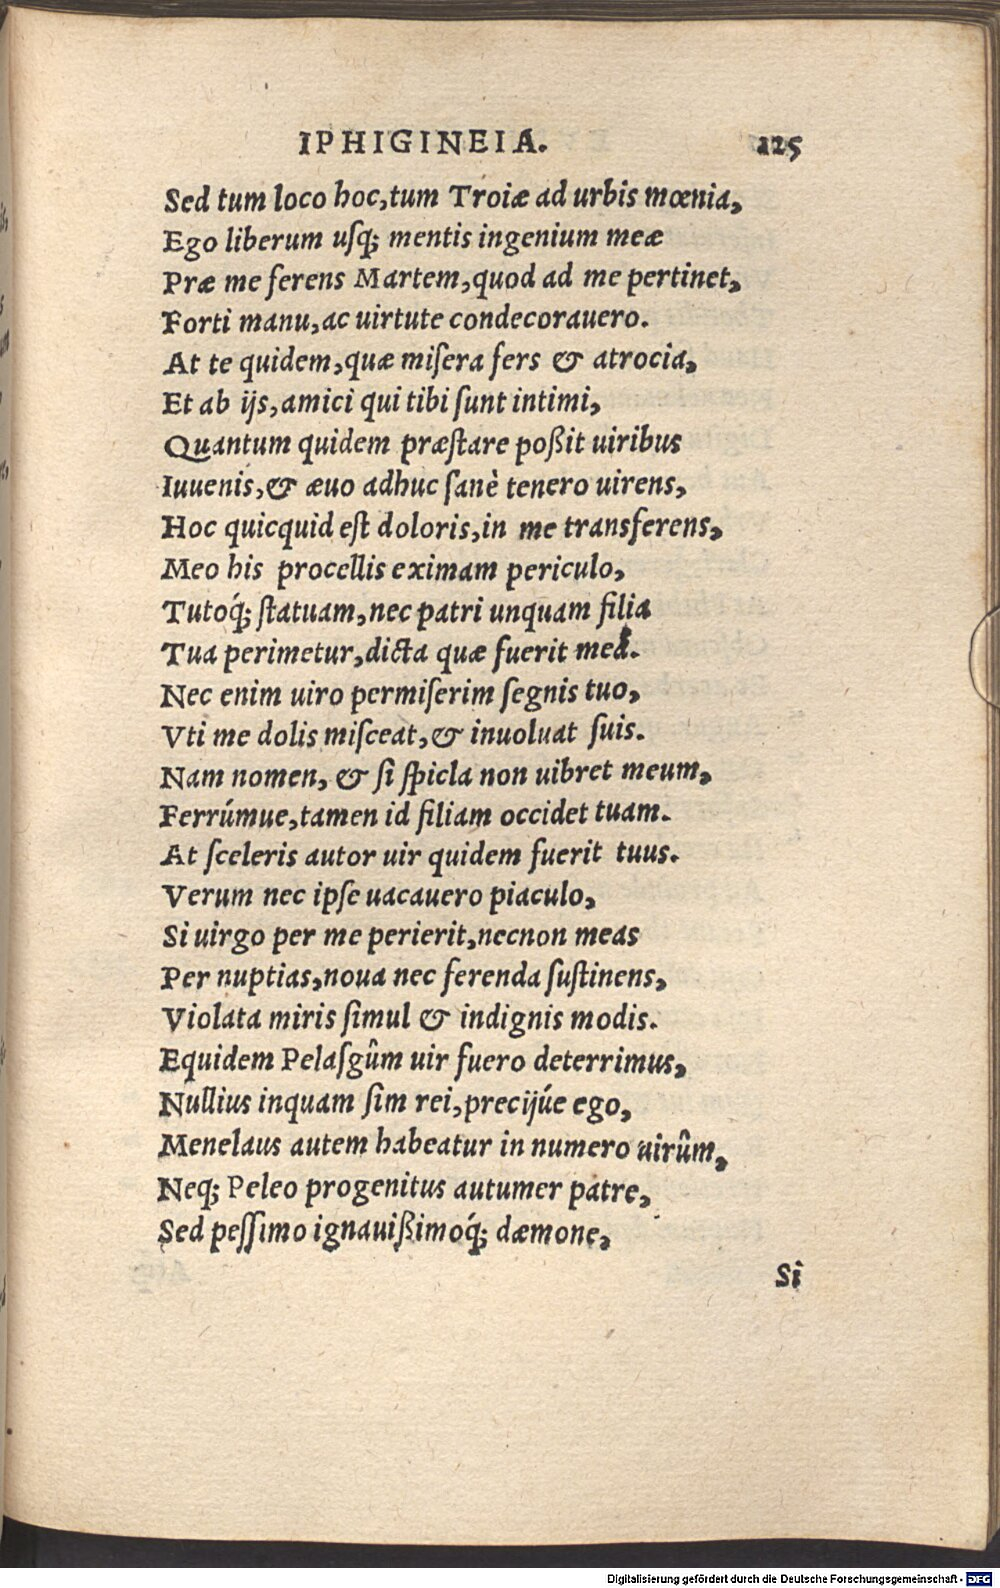 IPHIGINEIA. 125
Sed tum loco hoc, tum Troiæ ad urbis mœnia,
Ego liberum uſq; mentis ingenium meæ
Præ me ferens Martem, quod ad me pertinet,
Forti manu, ac uirtute condecorauero.
At te quidem, quæ miſera fers & atrocia,
Et ab ijs, amici qui tibi ſunt intimi,
Quantum quidem præſtare poßit uiribus
Iuuenis, & æuo adhuc ſanè tenero uirens,
Hoc quicquid eſt doloris, in me transferens,
Meo his procellis eximam periculo,
Tutoq́; ſtatuam, nec patri unquam filia
Tua perimetur, dicta quæ fuerit mea.
Nec enim uiro permiſerim ſegnis tuo,
Vti me dolis miſceat, & inuoluat ſuis.
Nam nomen, & ſi ſpicla non uibret meum,
Ferrúmue, tamen id filiam occidet tuam.
At ſceleris autor uir quidem fuerit tuus.
Verum nec ipſe uacauero piaculo,
Si uirgo per me perierit, necnon meas
Per nuptias, noua nec ferenda ſuſtinens,
Violata miris ſimul & indignis modis.
Equidem Pelaſgûm uir fuero deterrimus,
Nullius inquam ſim rei, precijúe ego,
Menelaus autem habeatur in numero uirûm,
Neq; Peleo progenitus autumer patre,
Sed peſſimo ignauißimoq́; dæmone,
Si
Digitalisierung gefördert durch die Deutsche Forschungsgemeinschaft - DFG